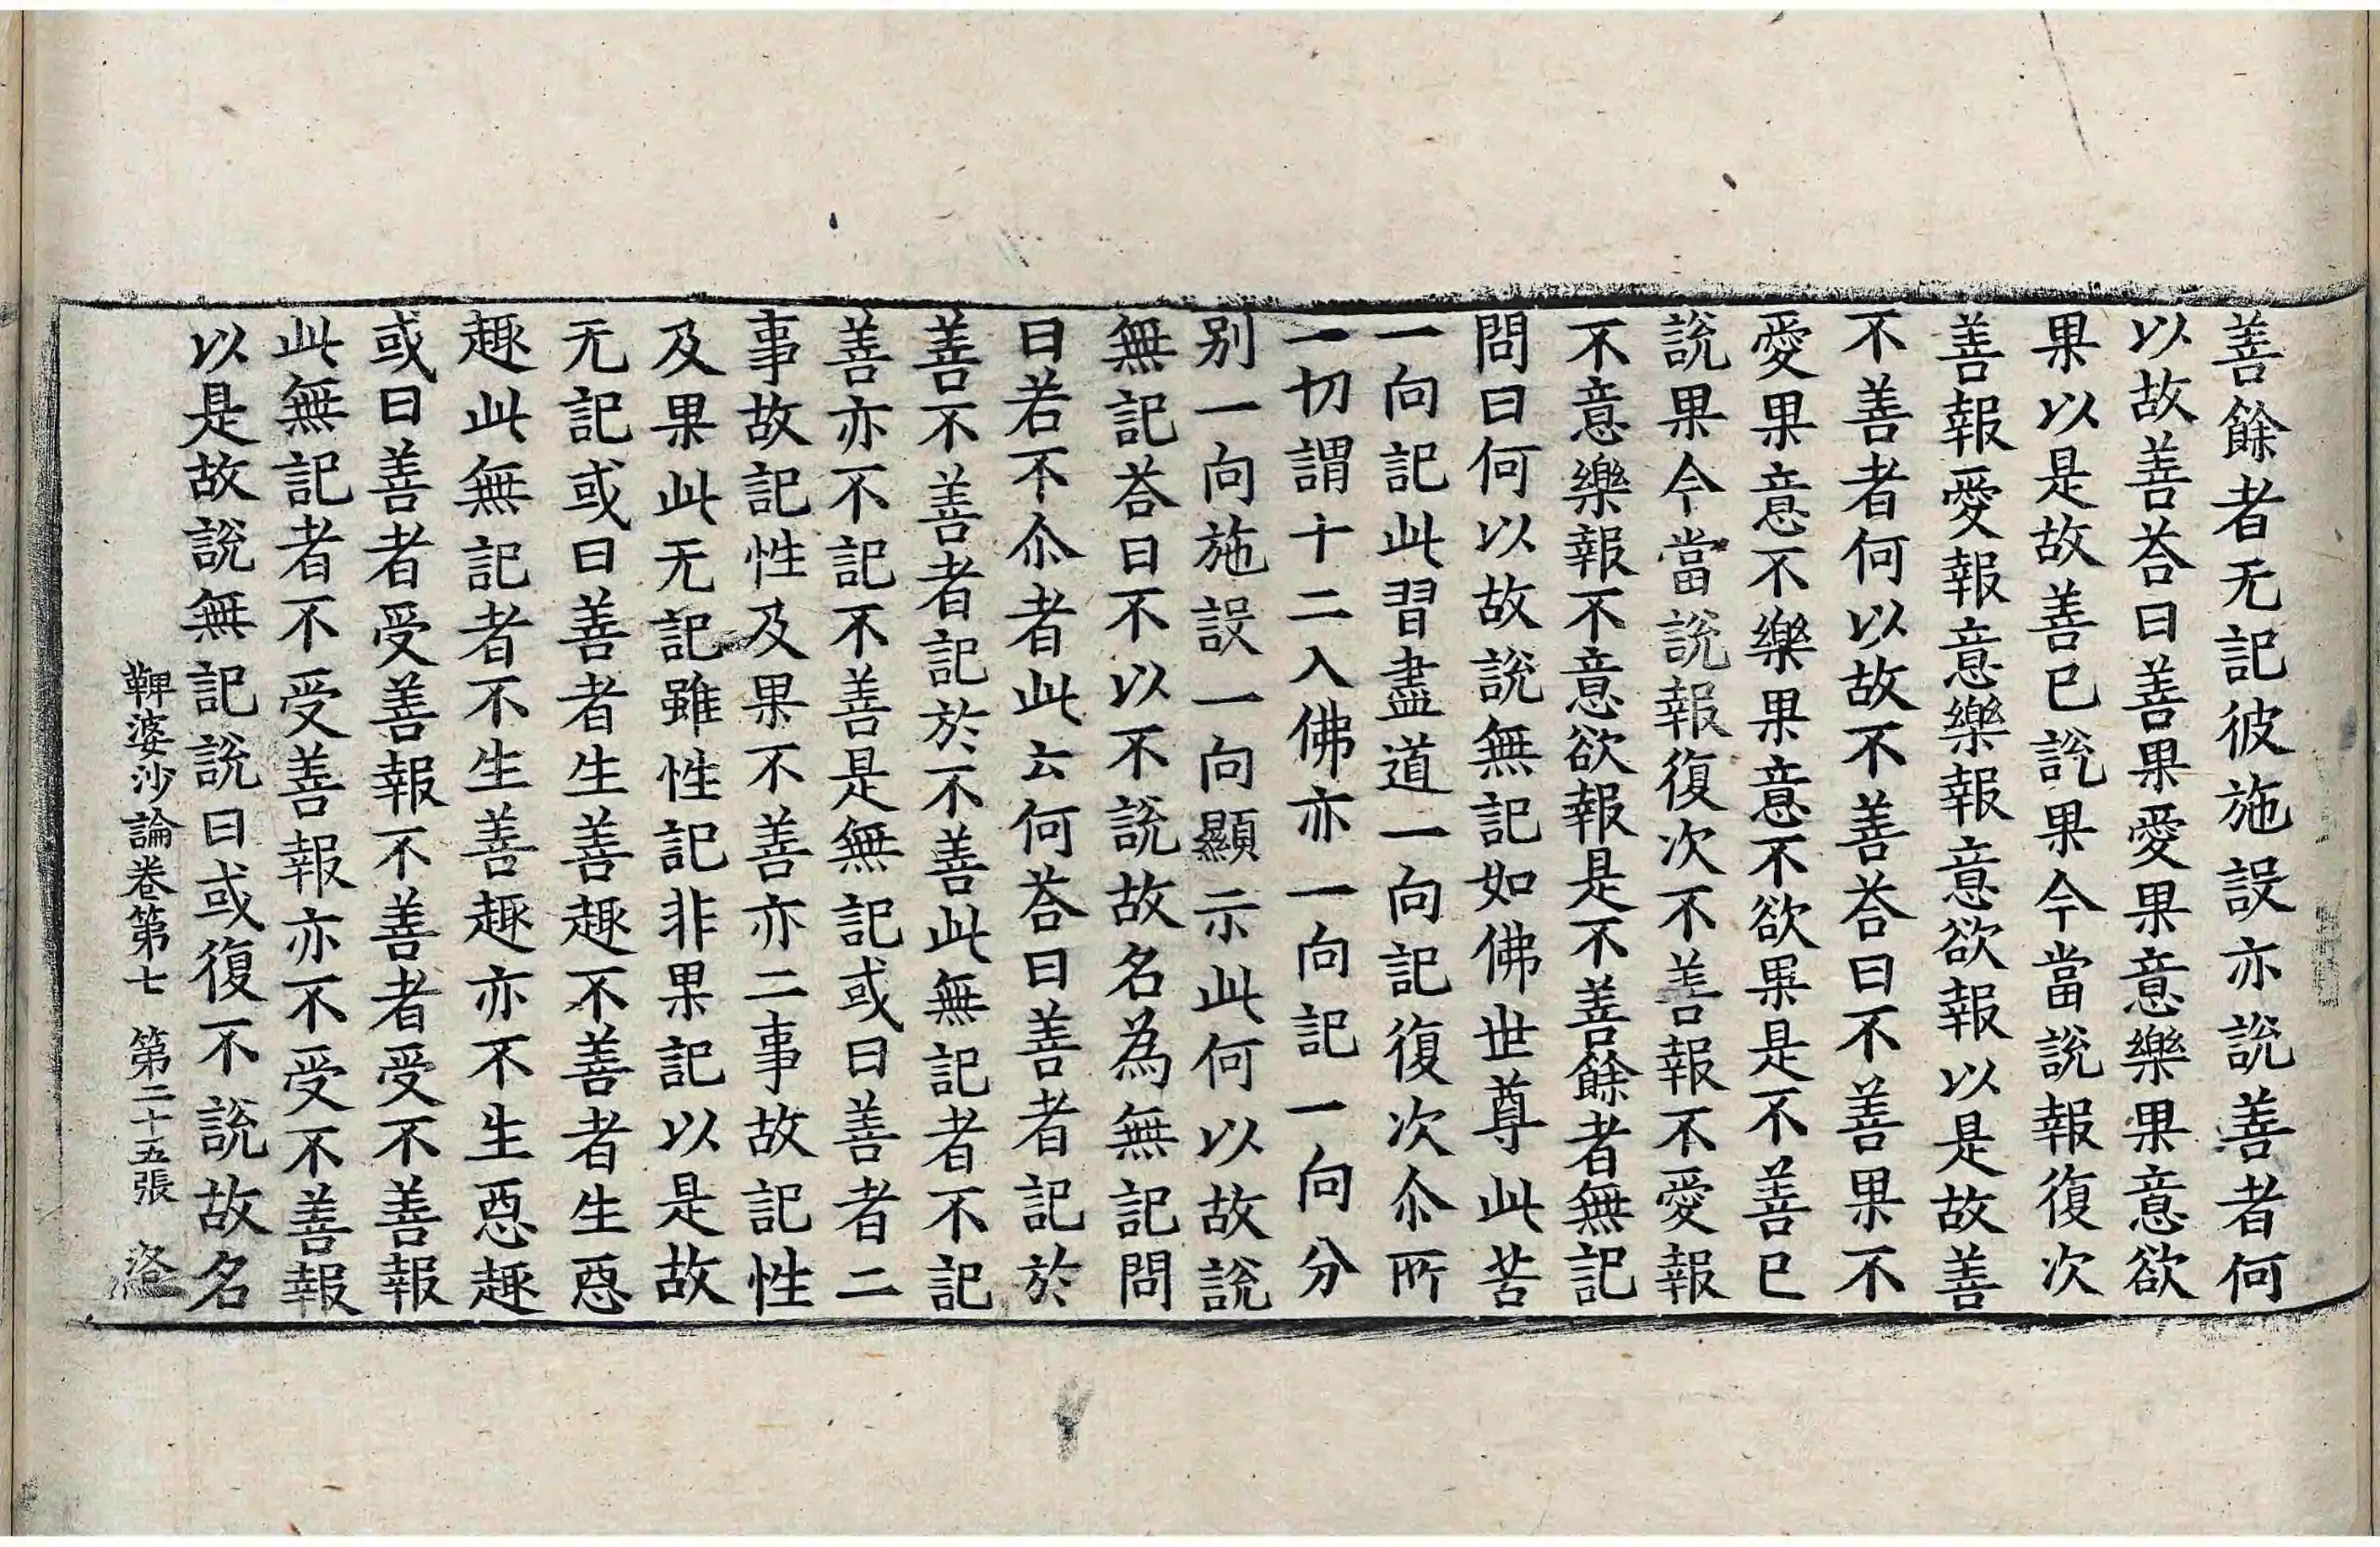 善餘者无記彼施設亦說善者何
以故善荅曰善果愛果意樂果意欲
果以是故善已說果今當說報復次
善報愛報意樂報意欲報以是故善
不善者何以故不善荅曰不善果不
愛果意不樂果意不欲果是不善已
說果今當說報復次不善報不愛報
不意樂報不意欲報是不善餘者無記
問曰何以故說無記如佛世尊此苦
一向記此習盡道一向記復次尒所
一切謂十二入佛亦一向記一向分
別一向施設一向顯示此何以故說
無記荅曰不以不說故名為無記問
曰若不尒者此云何荅曰善者記於
善不善者記於不善此無記者不記
善亦不記不善是無記或曰善者二
事故記性及果不善亦二事故記性
及果此无記雖性記非果記以是故
无記或曰善者生善趣不善者生惡
趣此無記者不生善趣亦不生惡趣
或曰善者受善報不善者受不善報
此無記者不受善報亦不受不善報
以是故說無記說曰或復不說故名
鞞婆沙論卷第七 第二十五張